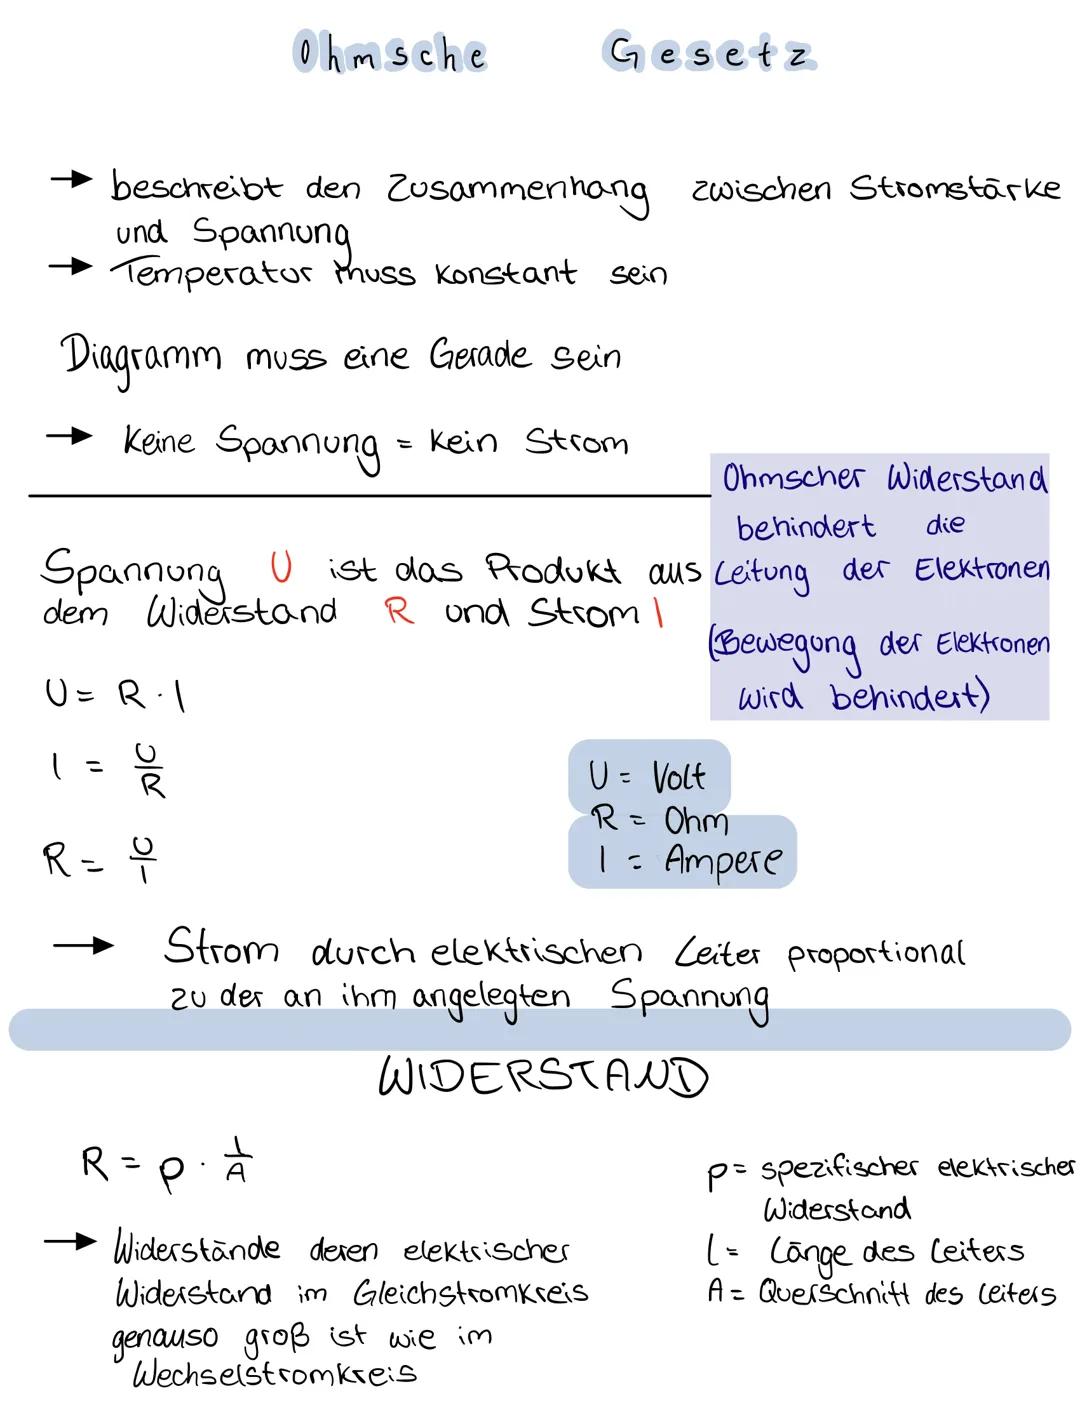 Ohmsche Gesetz
→ beschreibt den Zusammenhang zwischen Stromstärke
und Spannung
→ Temperatur muss konstant sein
Diagramm muss eine Gerade sein
→ Keine Spannung = kein Strom
Ohmscher Widerstand
behindert die
Leitung der Elektronen
(Bewegung der Elektronen
wird behindert)
Spannung U ist das Produkt aus
dem Widerstand R und Strom I
U = R · I
I = U/R
R = U/I
U = Volt
R = Ohm
I = Ampere
→ Strom durch elektrischen Leiter proportional
zu der an ihm angelegten Spannung
WIDERSTAND
R = p · l/A
p = spezifischer elektrischer
Widerstand
l = Länge des Leiters
A = Querschnitt des Leiters
→ Widerstände deren elektrischer
Widerstand im Gleichstromkreis
genauso groß ist wie im
Wechselstromkreis